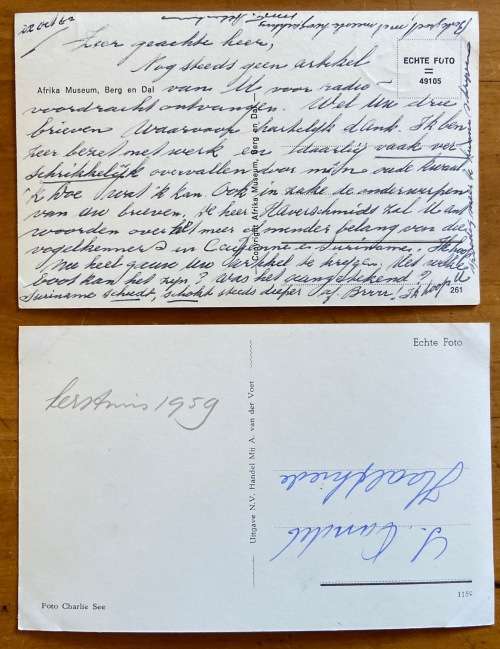 22 Oct 62
Zeer geachte heer,
Nog steeds geen artikel
van U voor radio-
voordracht ontvangen. Wel Uw drie
brieven waarvoor hartelijk dank. Ik ben
zeer bezet met werk en daarbij vaak ver
schrikkelijk overvallen door mijn oude kwaal
'k doe wat 'k kan. Ook in zake de onderwerpen
van uw brieven, de heer Haverschmidt zal U ant
woorden over het meer of minder belang van die
vogelkenners in Cayenne en Suriname. Ik hoop
nu heel gauw uw artikel te krijgen. Met welke
boot kan het zijn? Was het aangetekend?
Suriname schudt, schokt steeds dieper Brrr! Ik hoop
Afrika Museum, Berg en Dal
Copyright Afrika Museum, Berg en Dal
ECHTE FOTO
=
49105
261
Echte Foto
Kerstmis 1959
Uitgave N.V. Handel Mij A. van der Voet
Foto Charlie See
1159